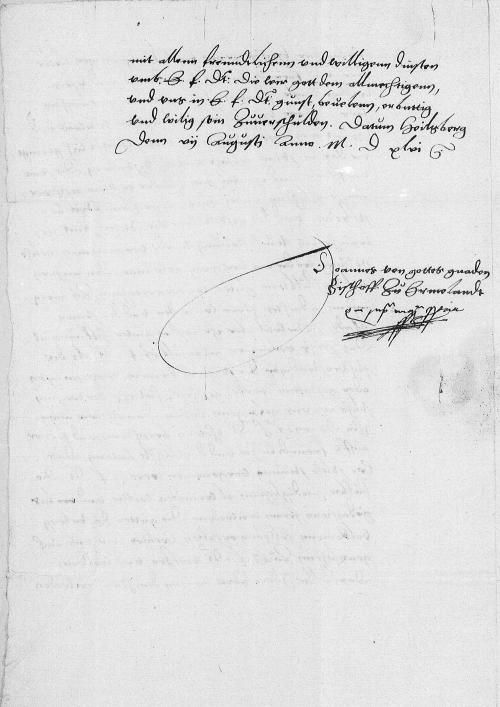 mit allenn freundtlichenn und willigenn dinsten
umb E. f. Dt. Die wir gott dem allmechtigenn,
und uns in E. f. Dt. gunst, bevelenn, erbuttig
und willig sein Zuuerschulden. Datum Heilsberg
Denn vij Augusti Anno. M. D xlvi
Joannes von gottes gnaden
Bischoff Zu Ermelandt